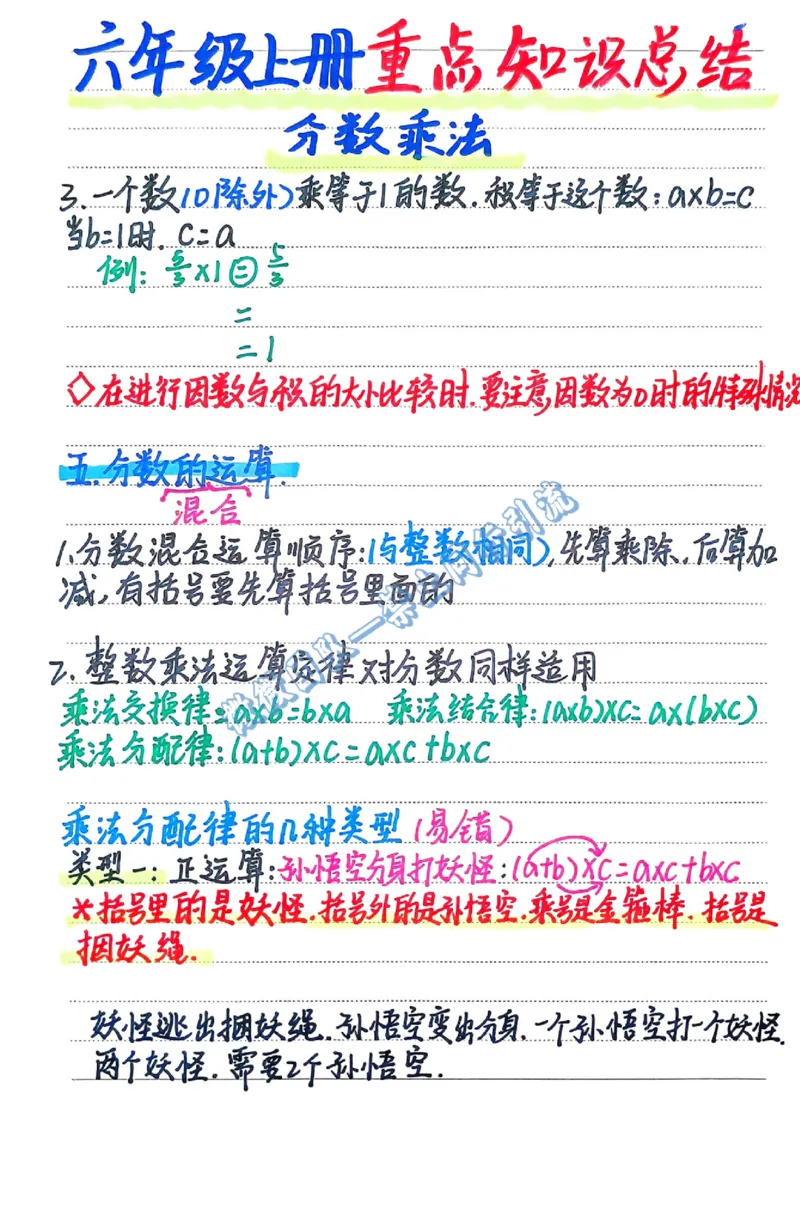 六年级上册重点知识总结
分数乘法
3.一个数(0除外)乘等于1的数.积等于这个数:a×b=c
当b=1时. c=a
例: 5/3×1=5/3
=
=1
◇在进行因数与积的大小比较时.要注意因数为0时的特殊情况
五.分数的运算.
混合
1.分数混合运算顺序:(与整数相同),先算乘除.后算加
减,有括号要先算括号里面的
2.整数乘法运算定律对分数同样适用
乘法交换律:a×b=b×a 乘法结合律:(a×b)×c=a×(b×c)
乘法分配律:(a+b)×c=a×c+b×c
乘法分配律的几种类型(易错)
类型一:正运算:孙悟空分身打妖怪:(a+b)×c=a×c+b×c
*括号里的是妖怪.括号外的是孙悟空.乘号是金箍棒.括号是
捆妖绳.
妖怪逃出捆妖绳.孙悟空变出分身.一个孙悟空打一个妖怪.
两个妖怪.需要2个孙悟空.